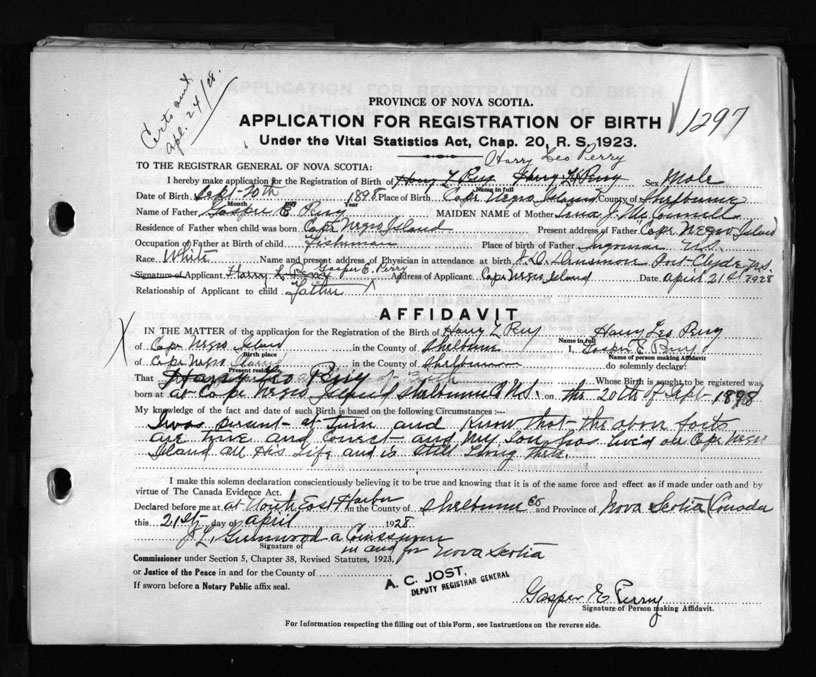 Certs sent
Apl. 24/28.
1297
PROVINCE OF NOVA SCOTIA.
APPLICATION FOR REGISTRATION OF BIRTH
Under the Vital Statistics Act, Chap. 20, R. S. 1923.
Harry Leo Perry
TO THE REGISTRAR GENERAL OF NOVA SCOTIA:
I hereby make application for the Registration of Birth of Harry L Perry Harry L Perry Name in full Sex Male
Date of Birth Sept- 20th 1898 Place of Birth Cape Negro Island County of Shelburne
Month Year
Name of Father Gasper E. Perry MAIDEN NAME of Mother J. McConnell
Residence of Father when child was born Cape Negro Island Present address of Father Cape Negro Island
Occupation of Father at Birth of child Fisherman Place of birth of Father Ingomar N.S.
Race White Name and present address of Physician in attendance at birth J. D. Densmore Port Clyde N.S.
Gasper E. Perry
Signature of Applicant Harry L Perry Address of Applicant Cape Negro Island Date April 21st 1928
Relationship of Applicant to child Father
AFFIDAVIT
IN THE MATTER of the application for the Registration of the Birth of Harry L Perry Harry Leo Perry
Name in full
of Cape Negro Island in the County of Shelburne I, Gasper E Perry
Birth place Name of person making Affidavit
of Cape Negro Island in the County of Shelburne do solemnly declare:
Present residence
That Harry Leo Perry Whose Birth is sought to be registered was
born at at Cape Negro Island Shelburne Co N.S. on the 20th of Sept- 1898
My knowledge of the fact and date of such Birth is based on the following Circumstances :—
I was present- at and Know that- the above facts
are true and correct- and My Son has lived on Cape Negro
Island all His Life and is still Living there.
I make this solemn declaration conscientiously believing it to be true and knowing that it is of the same force and effect as if made under oath and by
virtue of The Canada Evidence Act.
Declared before me at at North East Harbor in the County of Shelburne Co and Province of Nova Scotia Canada
this 21st day of April 1928
J. L. Greenwood a Commissioner
Signature of in and for Nova Scotia
Commissioner under Section 5, Chapter 38, Revised Statutes, 1923,
or Justice of the Peace in and for the County of
If sworn before a Notary Public affix seal.
A. C. JOST,
DEPUTY REGISTRAR GENERAL
Gasper E Perry
Signature of Person making Affidavit.
For Information respecting the filling out of this Form, see Instructions on the reverse side.